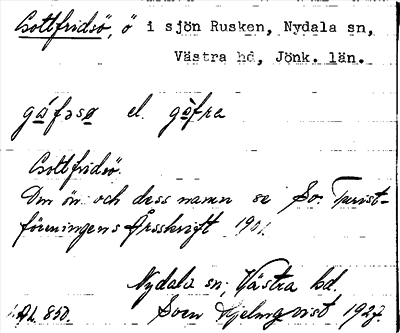 Gottfridsö, ö i sjön Rusken, Nydala sn,
Västra hd, Jönk. län.
gåfəsø el. gåfra
Gottfridsö.
Om ön och dess namn se Sv. Turist-
föreningens Årsskrift 1901.
Nydala sn, Västra hd.
Sven Hjelmqvist 1927.
850.